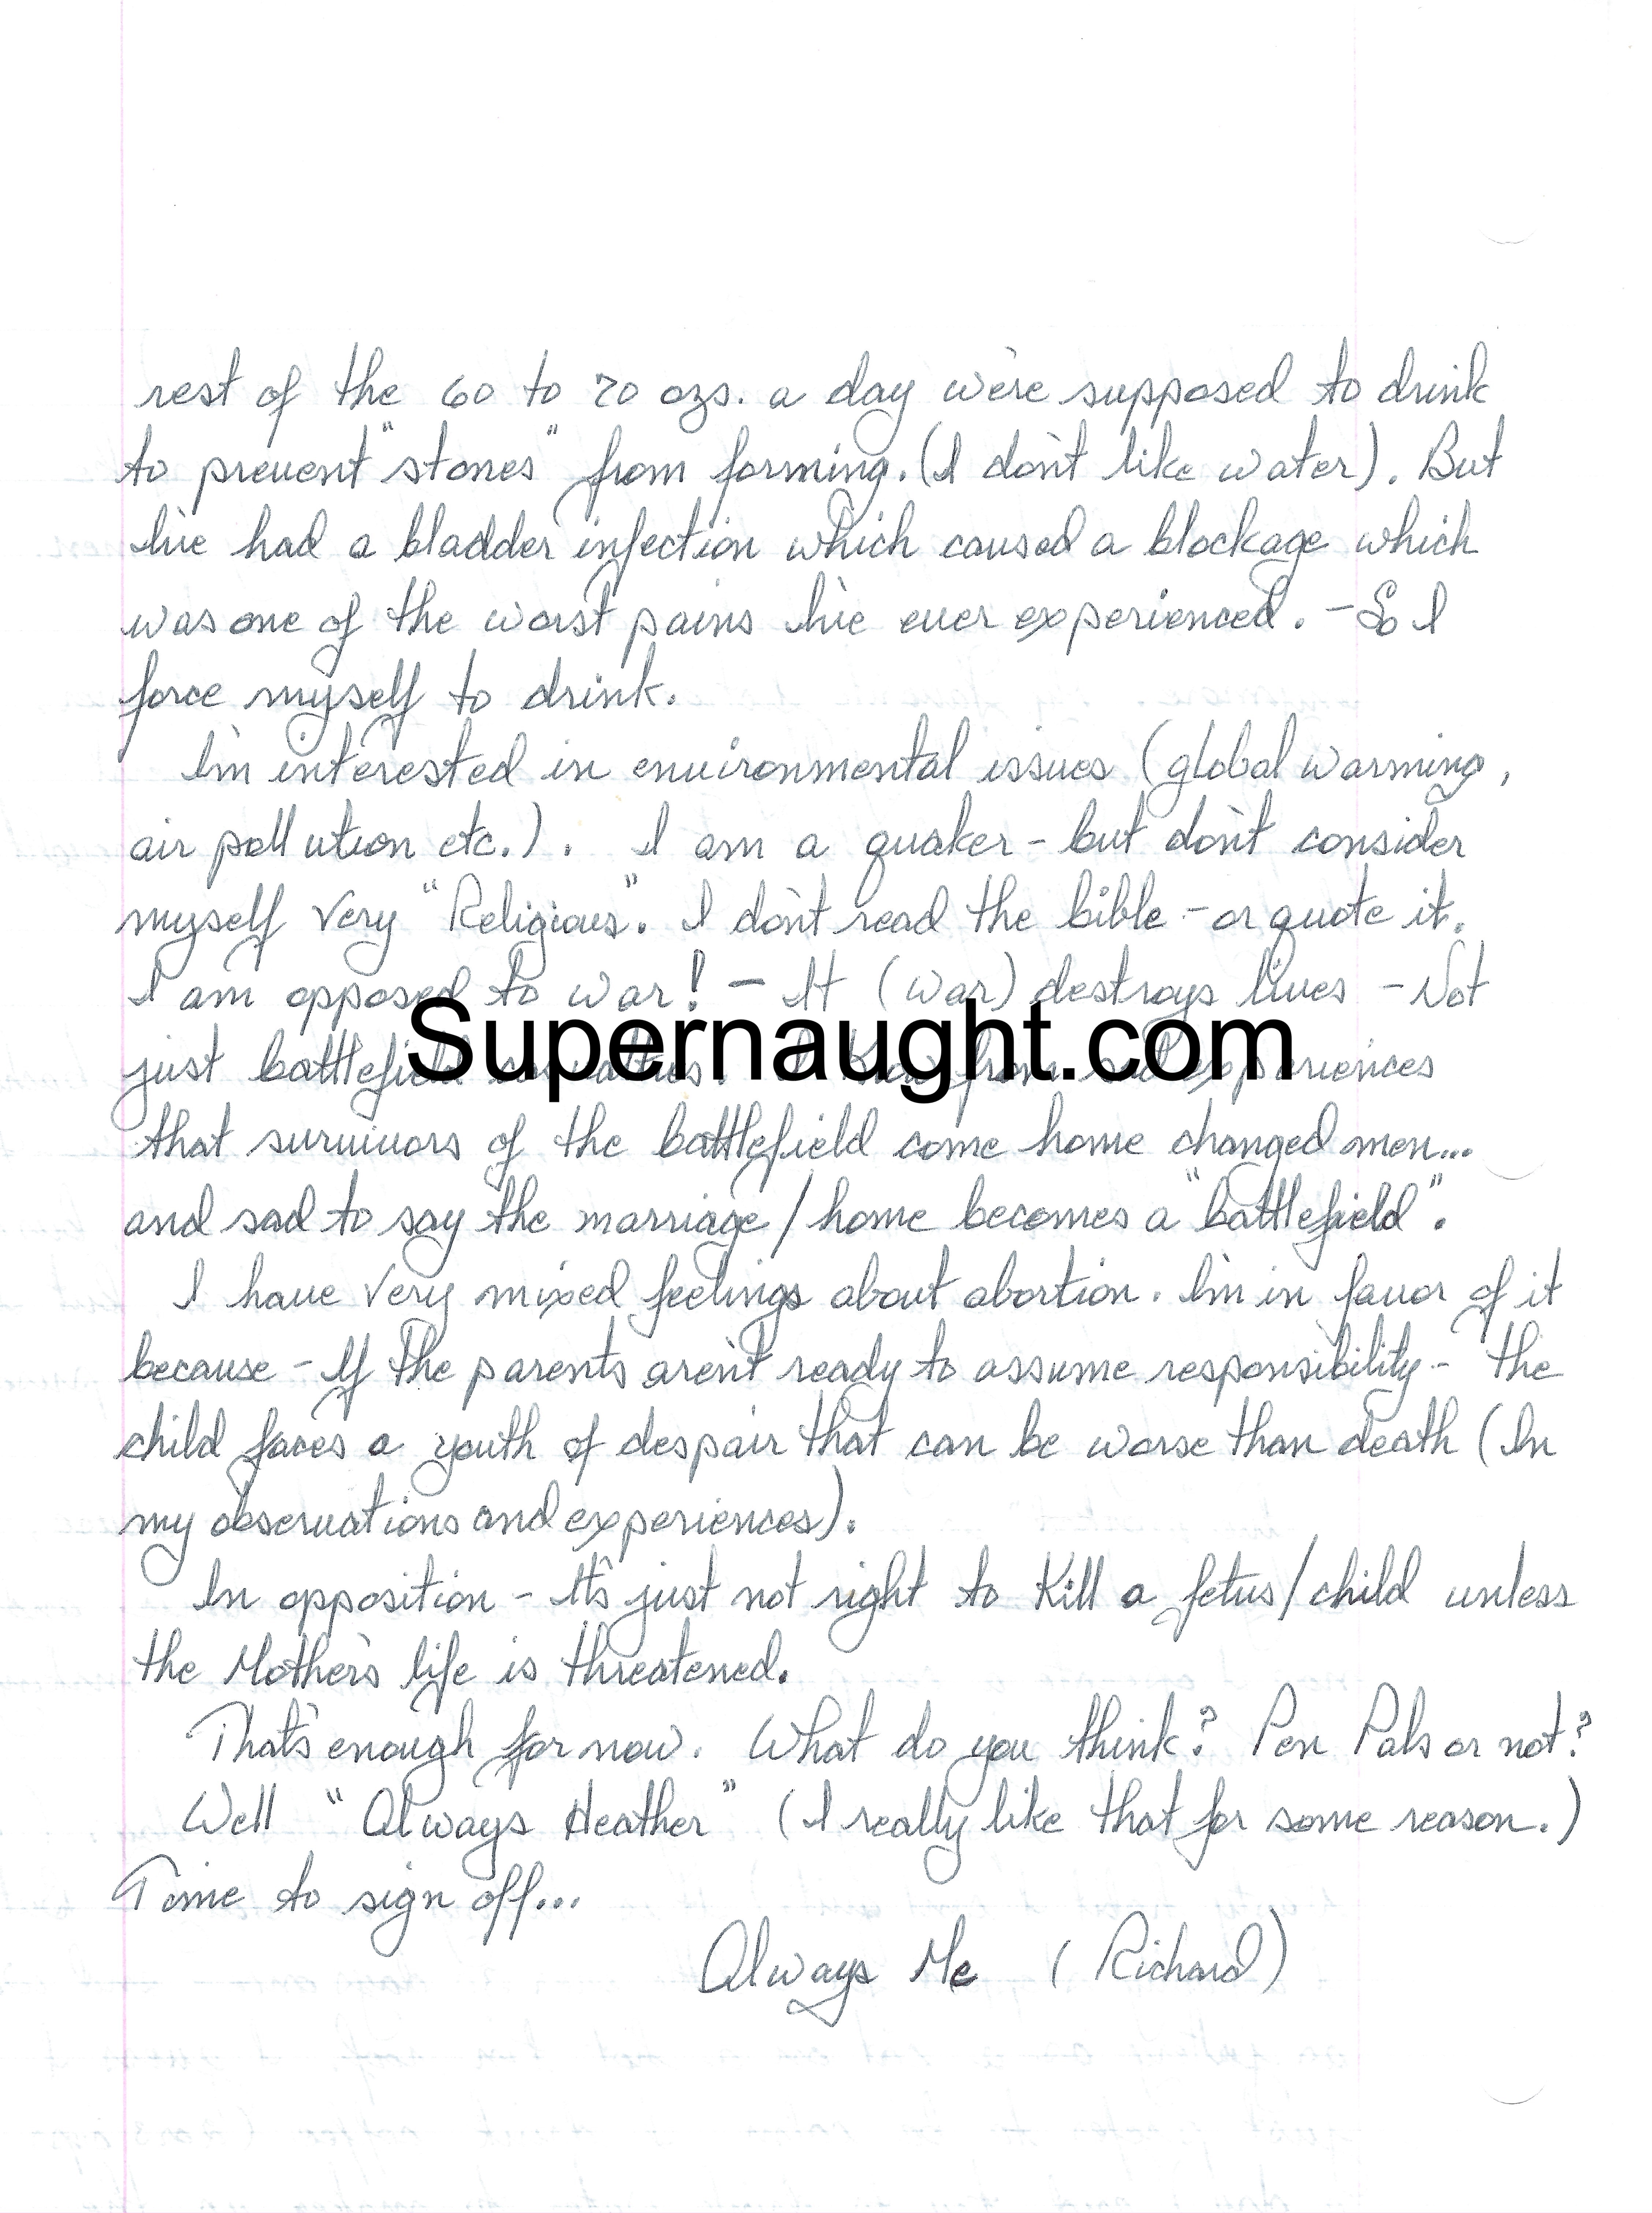 rest of the 60 to 70 ozs. a day we're supposed to drink
to prevent "stones" from forming. (I don't like water). But
I've had a bladder infection which caused a blockage which
was one of the worst pains I've ever experienced. - So I
force myself to drink.
I'm interested in environmental issues (global warming,
air pollution etc.). I am a quaker - but don't consider
myself very "Religious". I don't read the bible - or quote it.
I am opposed to war! - It (war) destroys lives - Not
Supernaught.com
just battlefield casualties. I know from experiences
that survivors of the battlefield come home changed men...
and sad to say the marriage / home becomes a "battlefield".
I have very mixed feelings about abortion. I'm in favor of it
because - If the parents aren't ready to assume responsibility - the
child faces a youth of despair that can be worse than death (In
my observations and experiences).
In opposition - It's just not right to Kill a fetus/child unless
the Mother's life is threatened.
That's enough for now. What do you think? Pen Pals or not?
Well "Always Heather" (I really like that for some reason.)
Time to sign off...
Always Me (Richard)